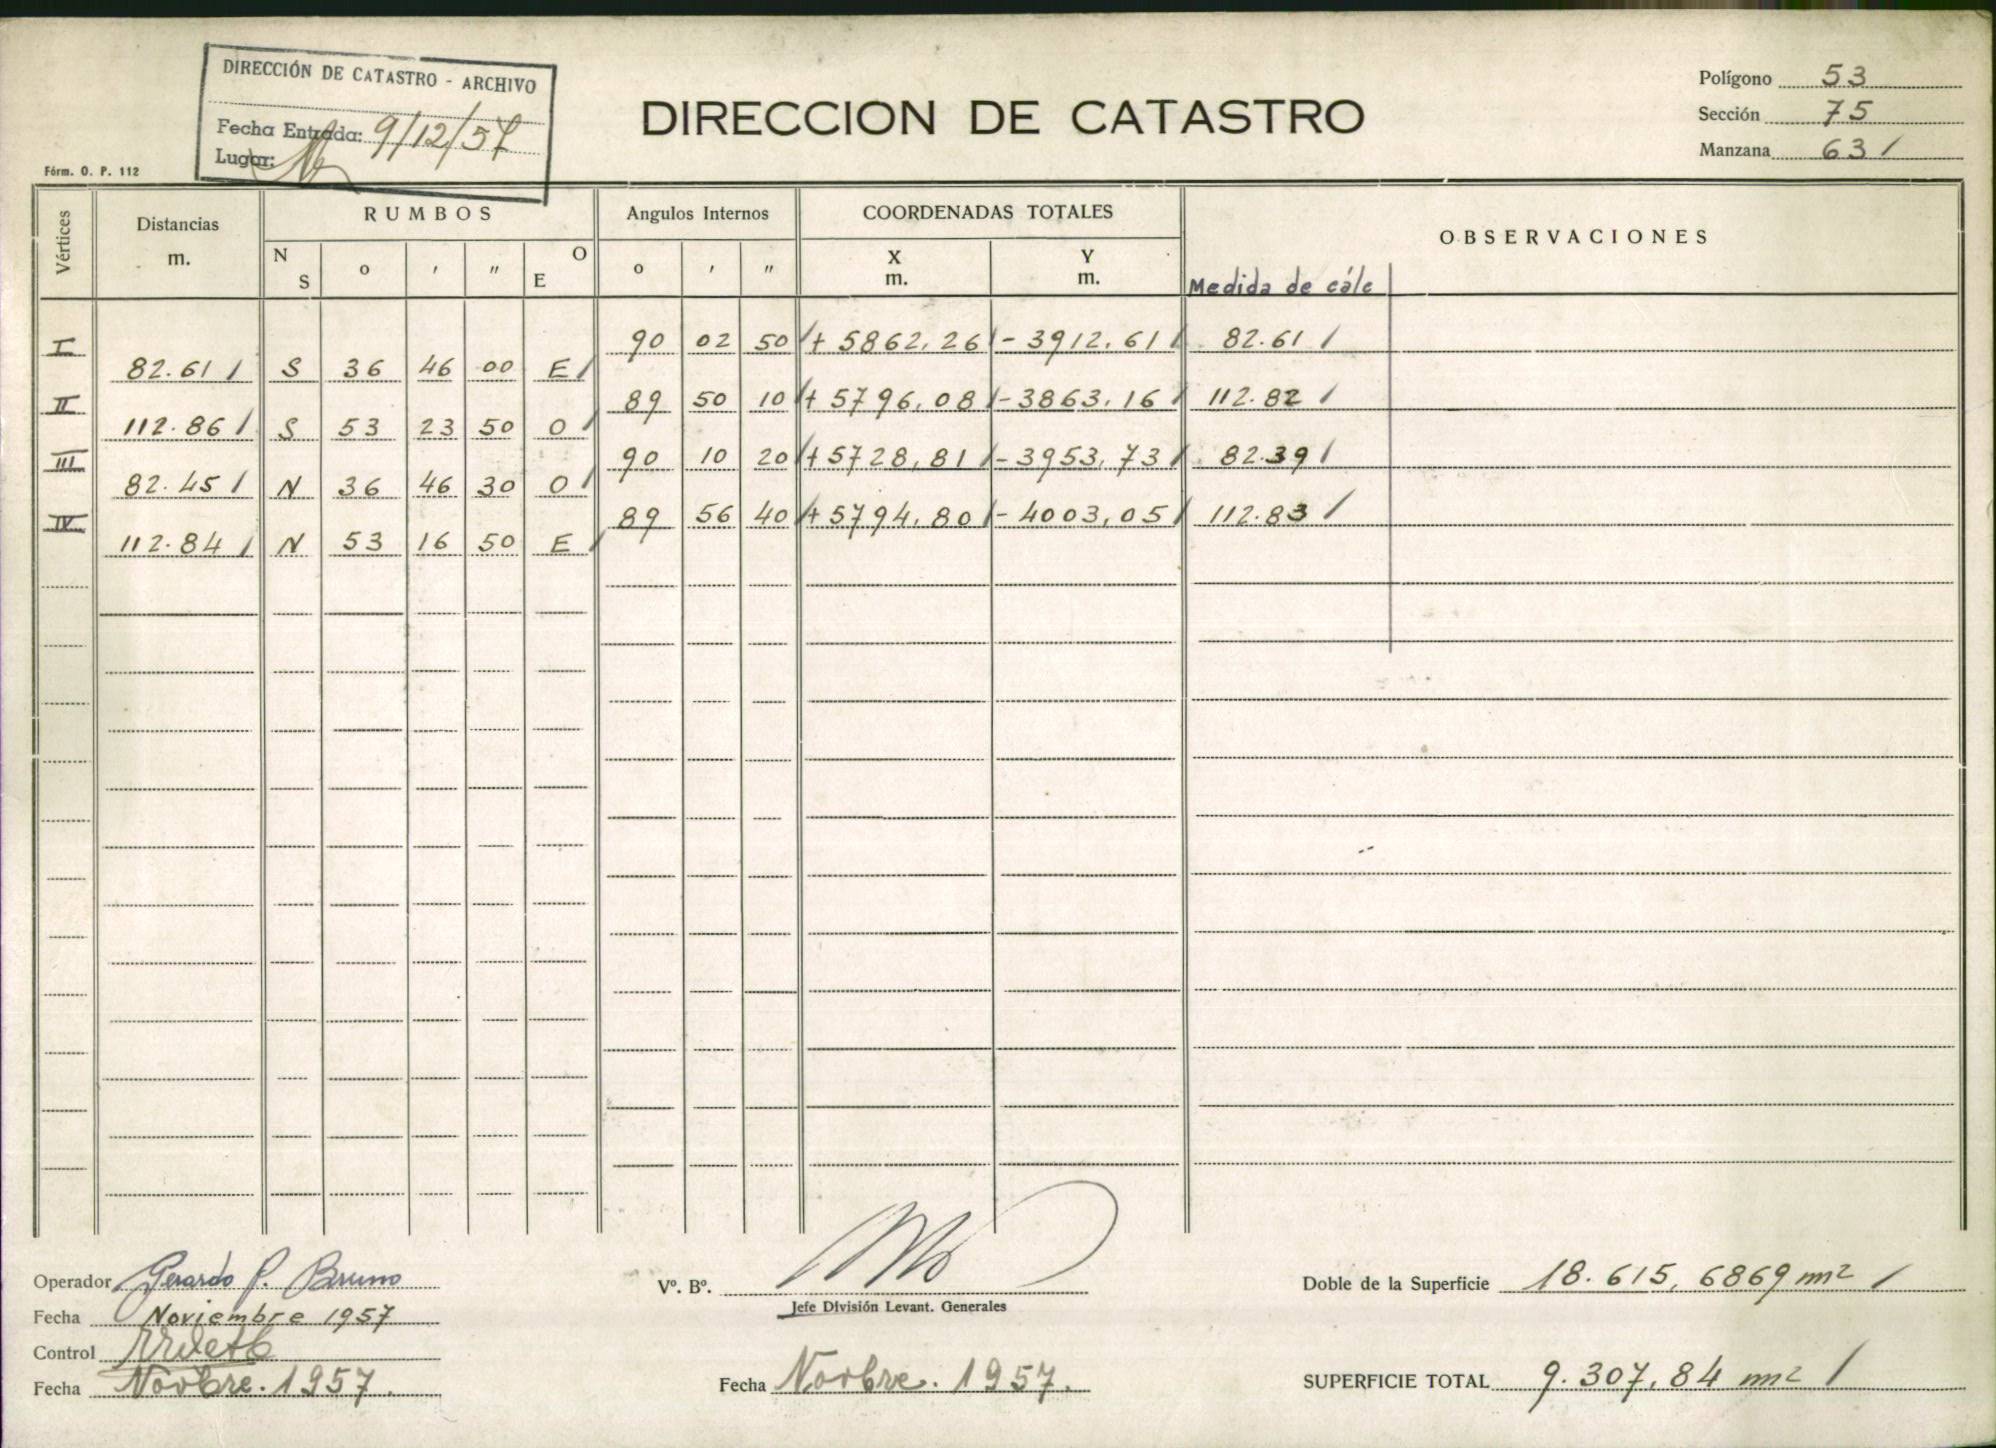 DIRECCIÓN DE CATASTRO - ARCHIVO
Fecha Entrada: 9/12/57
Lugar:
Fórm. O. P. 112
DIRECCION DE CATASTRO
Polígono 53
Sección 75
Manzana 631
Vértices Distancias m. RUMBOS Angulos Internos COORDENADAS TOTALES OBSERVACIONES
N S o ' " O E o ' " X m. Y m. Medida de cálc
I 90 02 50 + 5862,26 - 3912,61 82.61
82.61 S 36 46 00 E
II 89 50 10 + 5796,08 - 3863,16 112.82
112.86 S 53 23 50 O
III 90 10 20 + 5728,81 - 3953,73 82.39
82.45 N 36 46 30 O
IV 89 56 40 + 5794,80 - 4003,05 112.83
112.84 N 53 16 50 E
Operador Gerardo P. Bruno
Fecha Noviembre 1957
Control
Fecha Novbre. 1957.
Vº. Bº.
Jefe División Levant. Generales
Fecha Novbre. 1957.
Doble de la Superficie 18.615,6869 m2
SUPERFICIE TOTAL 9.307,84 m2